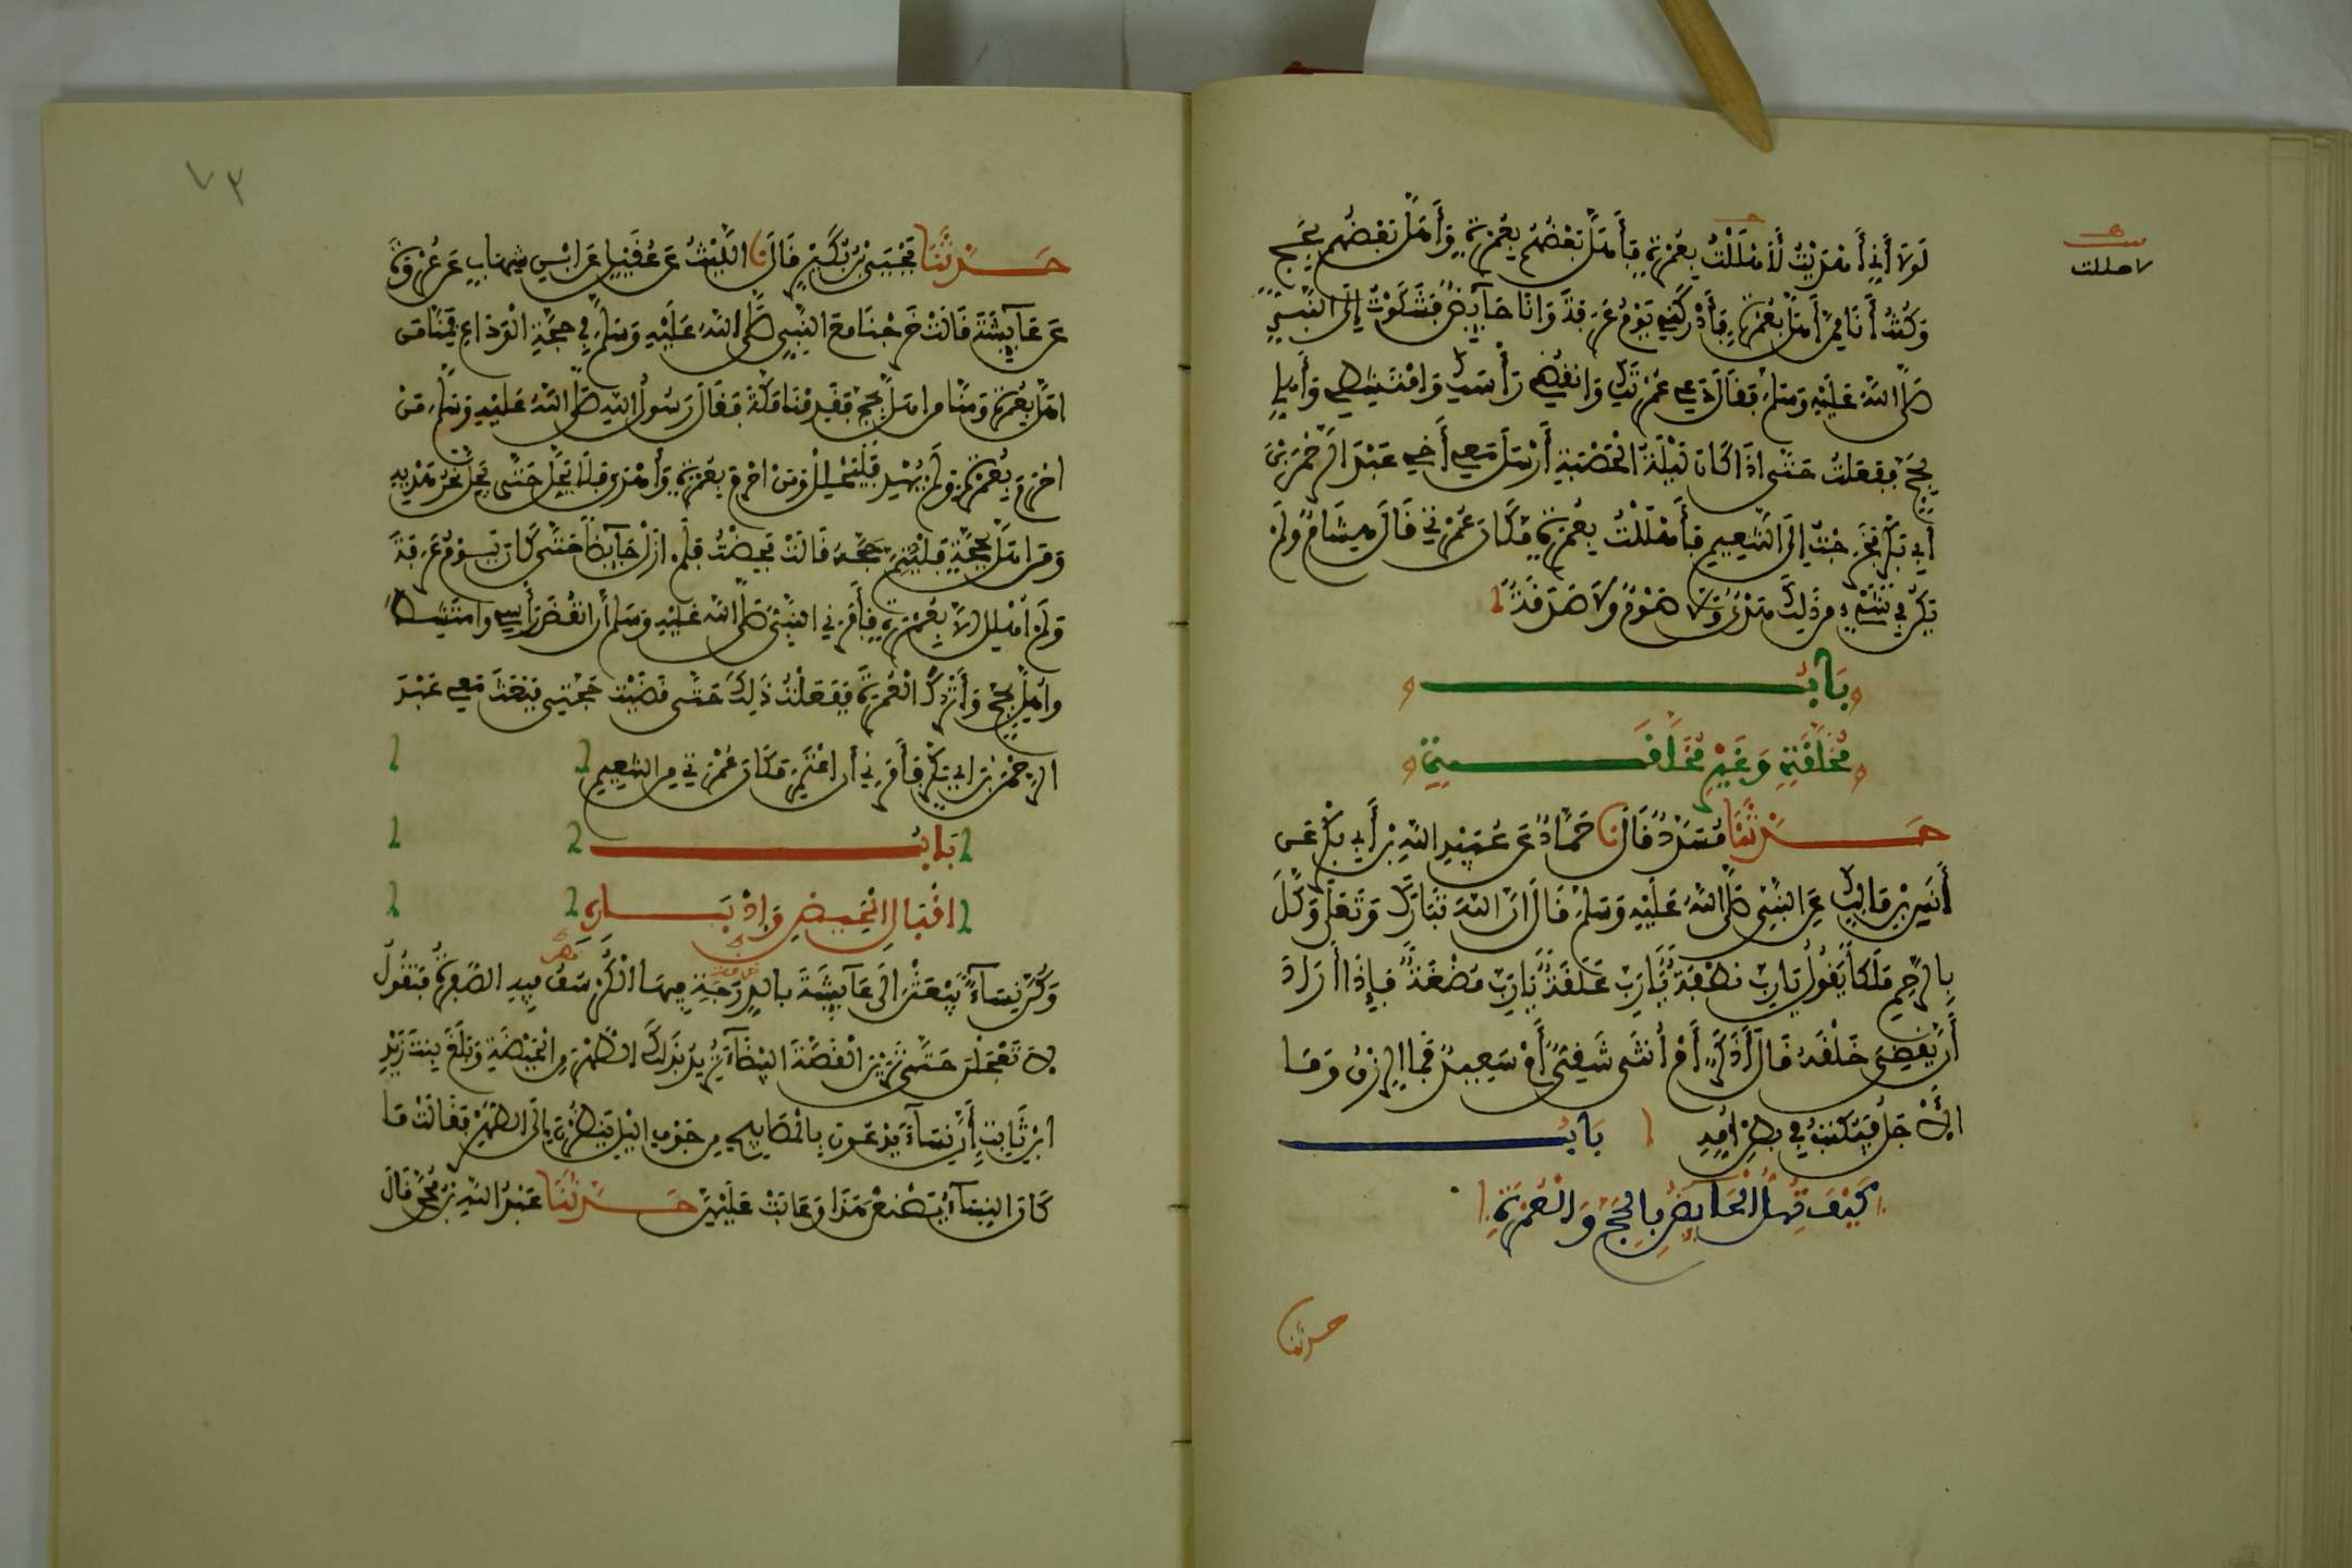 لَوْلَا أَنِّي أَهْدَيْتُ لَأَهْلَلْتُ بِعُمْرَةٍ فَأَهَلَّ بَعْضُهُمْ بِعُمْرَةٍ وَأَهَلَّ بَعْضُهُمْ بِحَجٍّ
لاهللت
وَكُنْتُ أَنَا مِمَّنْ أَهَلَّ بِعُمْرَةٍ فَأَدْرَكَنِي يَوْمُ عَرَفَةَ وَأَنَا حَائِضٌ فَشَكَوْتُ إِلَى النَّبِيِّ
صَلَّى اللَّهُ عَلَيْهِ وَسَلَّمَ فَقَالَ دَعِي عُمْرَتَكِ وَانْقُضِي رَأْسَكِ وَامْتَشِطِي وَأَهِلِّي
بِحَجٍّ فَفَعَلْتُ حَتَّى إِذَا كَانَ لَيْلَةُ الْحَصْبَةِ أَرْسَلَ مَعِي أَخِي عَبْدَ الرَّحْمَنِ بْنَ
أَبِي بَكْرٍ فَخَرَجْتُ إِلَى التَّنْعِيمِ فَأَهْلَلْتُ بِعُمْرَةٍ مَكَانَ عُمْرَتِي قَالَ هِشَامٌ وَلَمْ
يَكُنْ فِي شَيْءٍ مِنْ ذَلِكَ هَدْيٌ وَلَا صَوْمٌ وَلَا صَدَقَةٌ
بَابُ
مُخَلَّقَةٍ وَغَيْرِ مُخَلَّقَةٍ
حَدَّثَنَا مُسَدَّدٌ قَالَ نَا حَمَّادٌ عَنْ عُبَيْدِ اللَّهِ بْنِ أَبِي بَكْرٍ عَنْ
أَنَسِ بْنِ مَالِكٍ عَنِ النَّبِيِّ صَلَّى اللَّهُ عَلَيْهِ وَسَلَّمَ قَالَ إِنَّ اللَّهَ تَبَارَكَ وَتَعَلَى وَكَّلَ
بِالرَّحِمِ مَلَكًا يَقُولُ يَا رَبِّ نُطْفَةٌ يَا رَبِّ عَلَقَةٌ يَا رَبِّ مُضْغَةٌ فَإِذَا أَرَادَ
أَنْ يَقْضِيَ خَلْقَهُ قَالَ أَذَكَرٌ أَمْ أُنْثَى شَقِيٌّ أَوْ سَعِيدٌ فَمَا الرِّزْقُ وَمَا
الْأَجَلُ فَيُكْتَبُ فِي بَطْنِ أُمِّهِ بَابُ
كَيْفَ تُهِلُّ الْحَائِضُ بِالْحَجِّ وَالْعُمْرَةِ
حدثنا
٧٣
حَدَّثَنَا يَحْيَى بْنُ بُكَيْرٍ قَالَ نَا اللَّيْثُ عَنْ عُقَيْلٍ عَنِ ابْنِ شِهَابٍ عَنْ عُرْوَةَ
عَنْ عَائِشَةَ قَالَتْ خَرَجْنَا مَعَ النَّبِيِّ صَلَّى اللَّهُ عَلَيْهِ وَسَلَّمَ فِي حَجَّةِ الْوَدَاعِ فَمِنَّا مَنْ
أَهَلَّ بِعُمْرَةٍ وَمِنَّا مَنْ أَهَلَّ بِحَجٍّ فَقَدِمْنَا مَكَّةَ فَقَالَ رَسُولُ اللَّهِ صَلَّى اللَّهُ عَلَيْهِ وَسَلَّمَ مَنْ
احْرَمَ بِعُمْرَةٍ وَلَمْ يُهْدِ فَلْيَحْلِلْ وَمَنْ احْرَمَ بِعُمْرَةٍ وَأَهْدَى فَلَا يَحِلُّ حَتَّى يَحِلَّ نَحْرُ هَدْيِهِ
وَمَنْ أَهَلَّ بِحَجَّةٍ فَلْيُتِمَّ حَجَّهُ قَالَتْ فَحِضْتُ فَلَمْ أَزَلْ حَائِضًا حَتَّى كَانَ يَوْمُ عَرَفَةَ
وَلَمْ أُهْلِلْ إِلَّا بِعُمْرَةٍ فَأَمَرَنِي النَّبِيُّ صَلَّى اللَّهُ عَلَيْهِ وَسَلَّمَ أَنْ أَنْقُضَ رَأْسِي وَامْتَشِطَ
وَأُهِلَّ بِحَجٍّ وَأَتْرُكَ الْعُمْرَةَ فَفَعَلْتُ ذَلِكَ حَتَّى قَضَيْتُ حَجَّتِي فَبَعَثَ مَعِي عَبْدَ
الرَّحْمَنِ بْنَ أَبِي بَكْرٍ فَأَمَرَنِي أَنْ أَعْتَمِرَ مَكَانَ عُمْرَتِي مِنَ التَّنْعِيمِ
بَابُ
اقْبَالِ الْمَحِيضِ وَإِدْبَارِهِ
وَكُنَّ نِسَاءٌ يَبْعَثْنَ إِلَى عَائِشَةَ بِالدِّرَجَةِ فِيهَا الْكُرْسُفُ فِيهِ الصُّفْرَةُ فَتَقُولُ
لَا تَعْجَلْنَ حَتَّى تَرَيْنَ الْقَصَّةَ الْبَيْضَاءَ تُرِيدُ بِذَلِكَ الطُّهْرَ مِنَ الْحَيْضَةِ وَبَلَغَ بِنْتَ زَيْدِ
ابْنِ ثَابِتٍ أَنَّ نِسَاءً يَدْعُونَ بِالْمَصَابِيحِ مِنْ جَوْفِ اللَّيْلِ يَنْظُرْنَ إِلَى الطُّهْرِ فَقَالَتْ مَا
كَانَ النِّسَاءُ يَصْنَعْنَ هَذَا وَعَابَتْ عَلَيْهِنَّ حَدَّثَنَا عَبْدُ اللَّهِ بْنُ مُحَمَّدٍ قَالَ